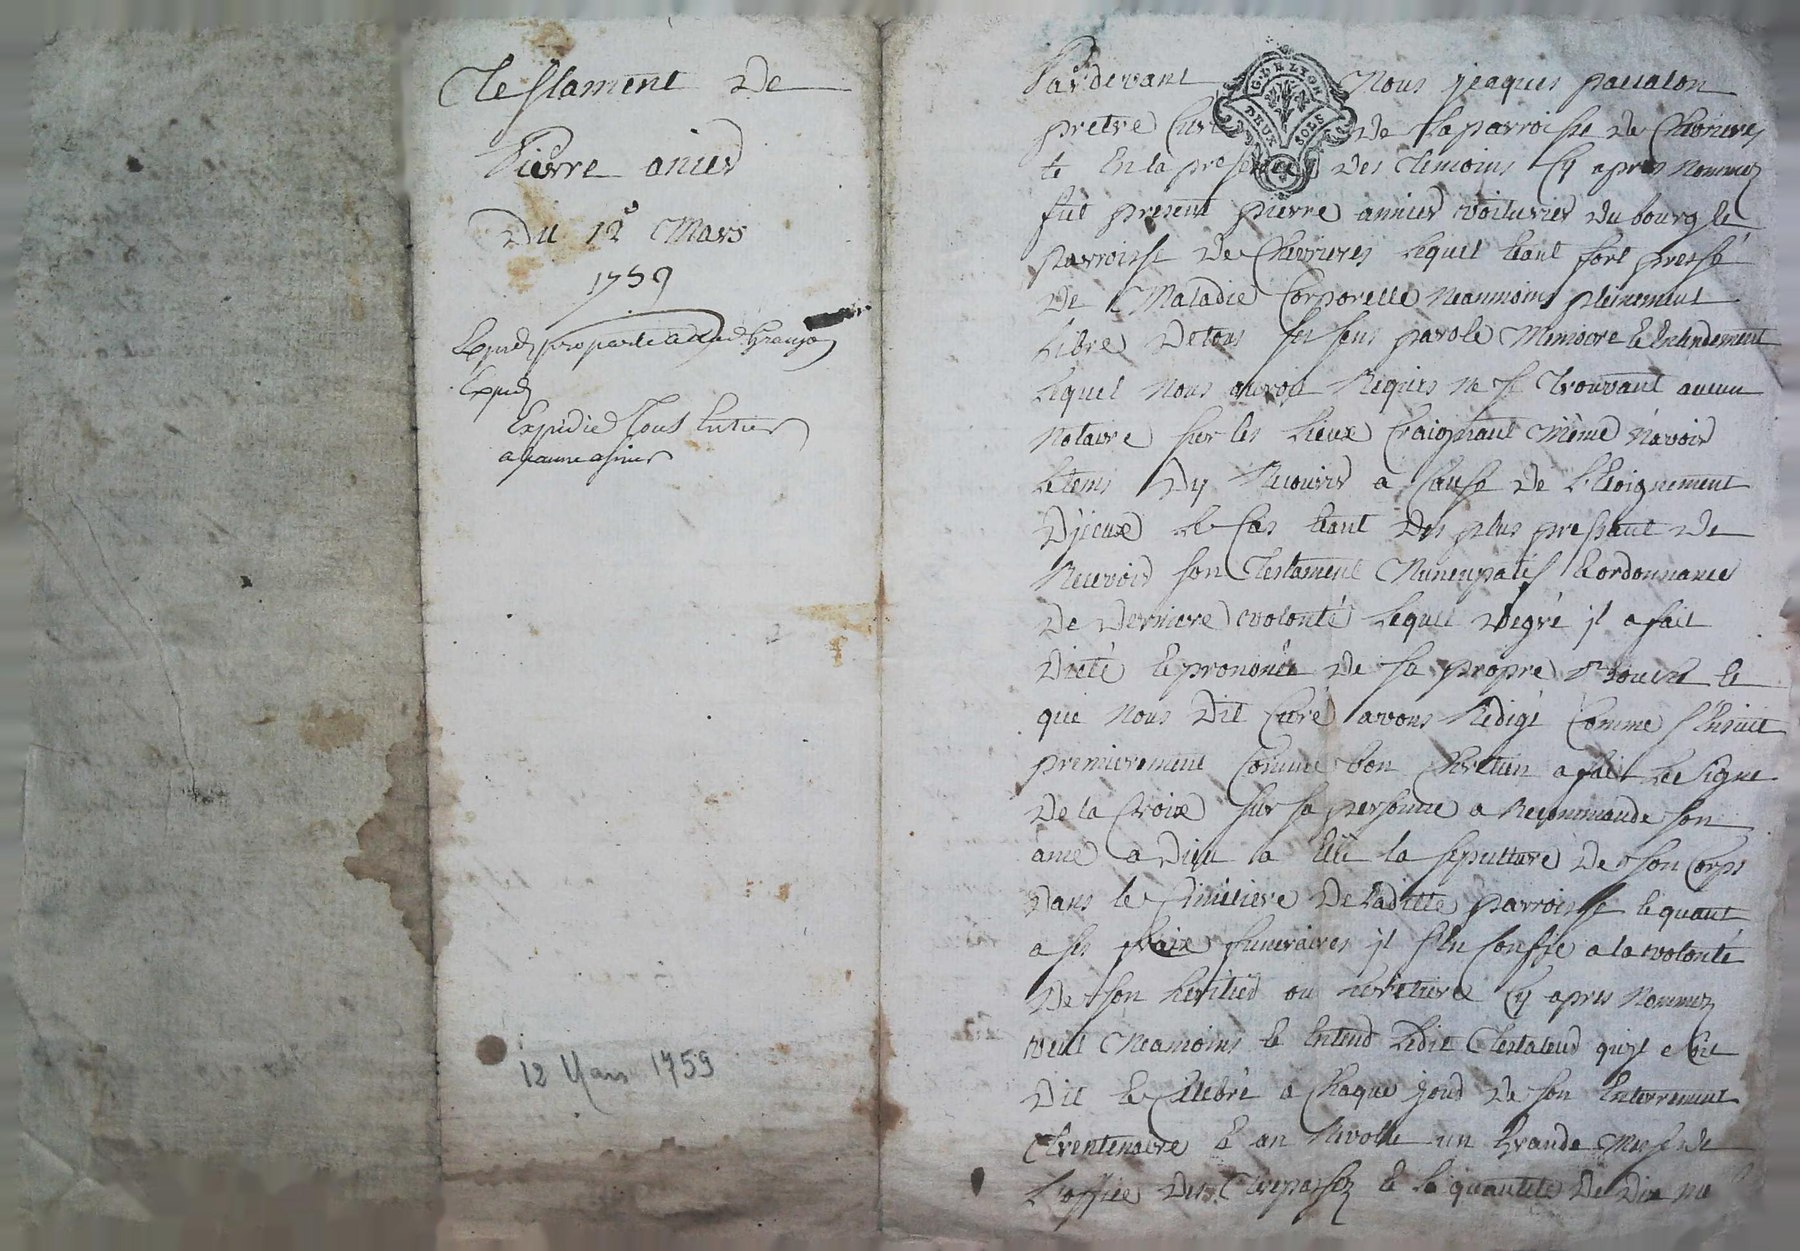 Testament de
Pierre anier
Du 12e Mars
1759
Expedié Tout Entier
a jeanne asnier
12 Mars 1759
G. DE LYON
DEUX SOLS
Pardevant Nous jeaques pacalon
pretre Curé de La parroisse de Chevrieres
Et En la presence Des Temoins Cy apres Nommez
fut present pierre annier voiturier Du bourg Et
parroisse De Chevrieres Lequel Etant fort pressé
De Maladie Corporelle Neanmoins pleinement
Libre De tous ses sens parole Memoire Et Entendement
Lequel Nous auroit Requis ne se Trouvant aucun
Notaire sur les Lieux Craignant Même N'avoir
Le tems D'y Recourir a Cause De L'Eloignement
D'jceux Le Cas Etant Des plus pressant De
Recevoir son Testament Nuncupatif Et ordonnance
De Derniere volonté Lequel De gré jl a fait
Dicté Et prononcé De sa propre Bouche Et
que Nous Dit Curé avons Redigé Comme s'Ensuit
premierement Comme bon Chretien a fait Le Signe
De la Croix sur sa personne a Recommandé son
ame a Dieu a Elu la sepulture De son Corps
Dans le Cimetiere De Laditte parroisse Et quant
a ses fraix funeraires jl s'En Confie a la volonté
De son heritier ou heritiere Cy apres Nommez
veut Neamoins Et Entend Ledit Testateur qu'jl soit
Dit Et Celebré a Chaque jour De son Enterrement
Trentenaire Et an Revolle un Grande Messe De
L'office Des Trepassez Et la quantité De Dix Me